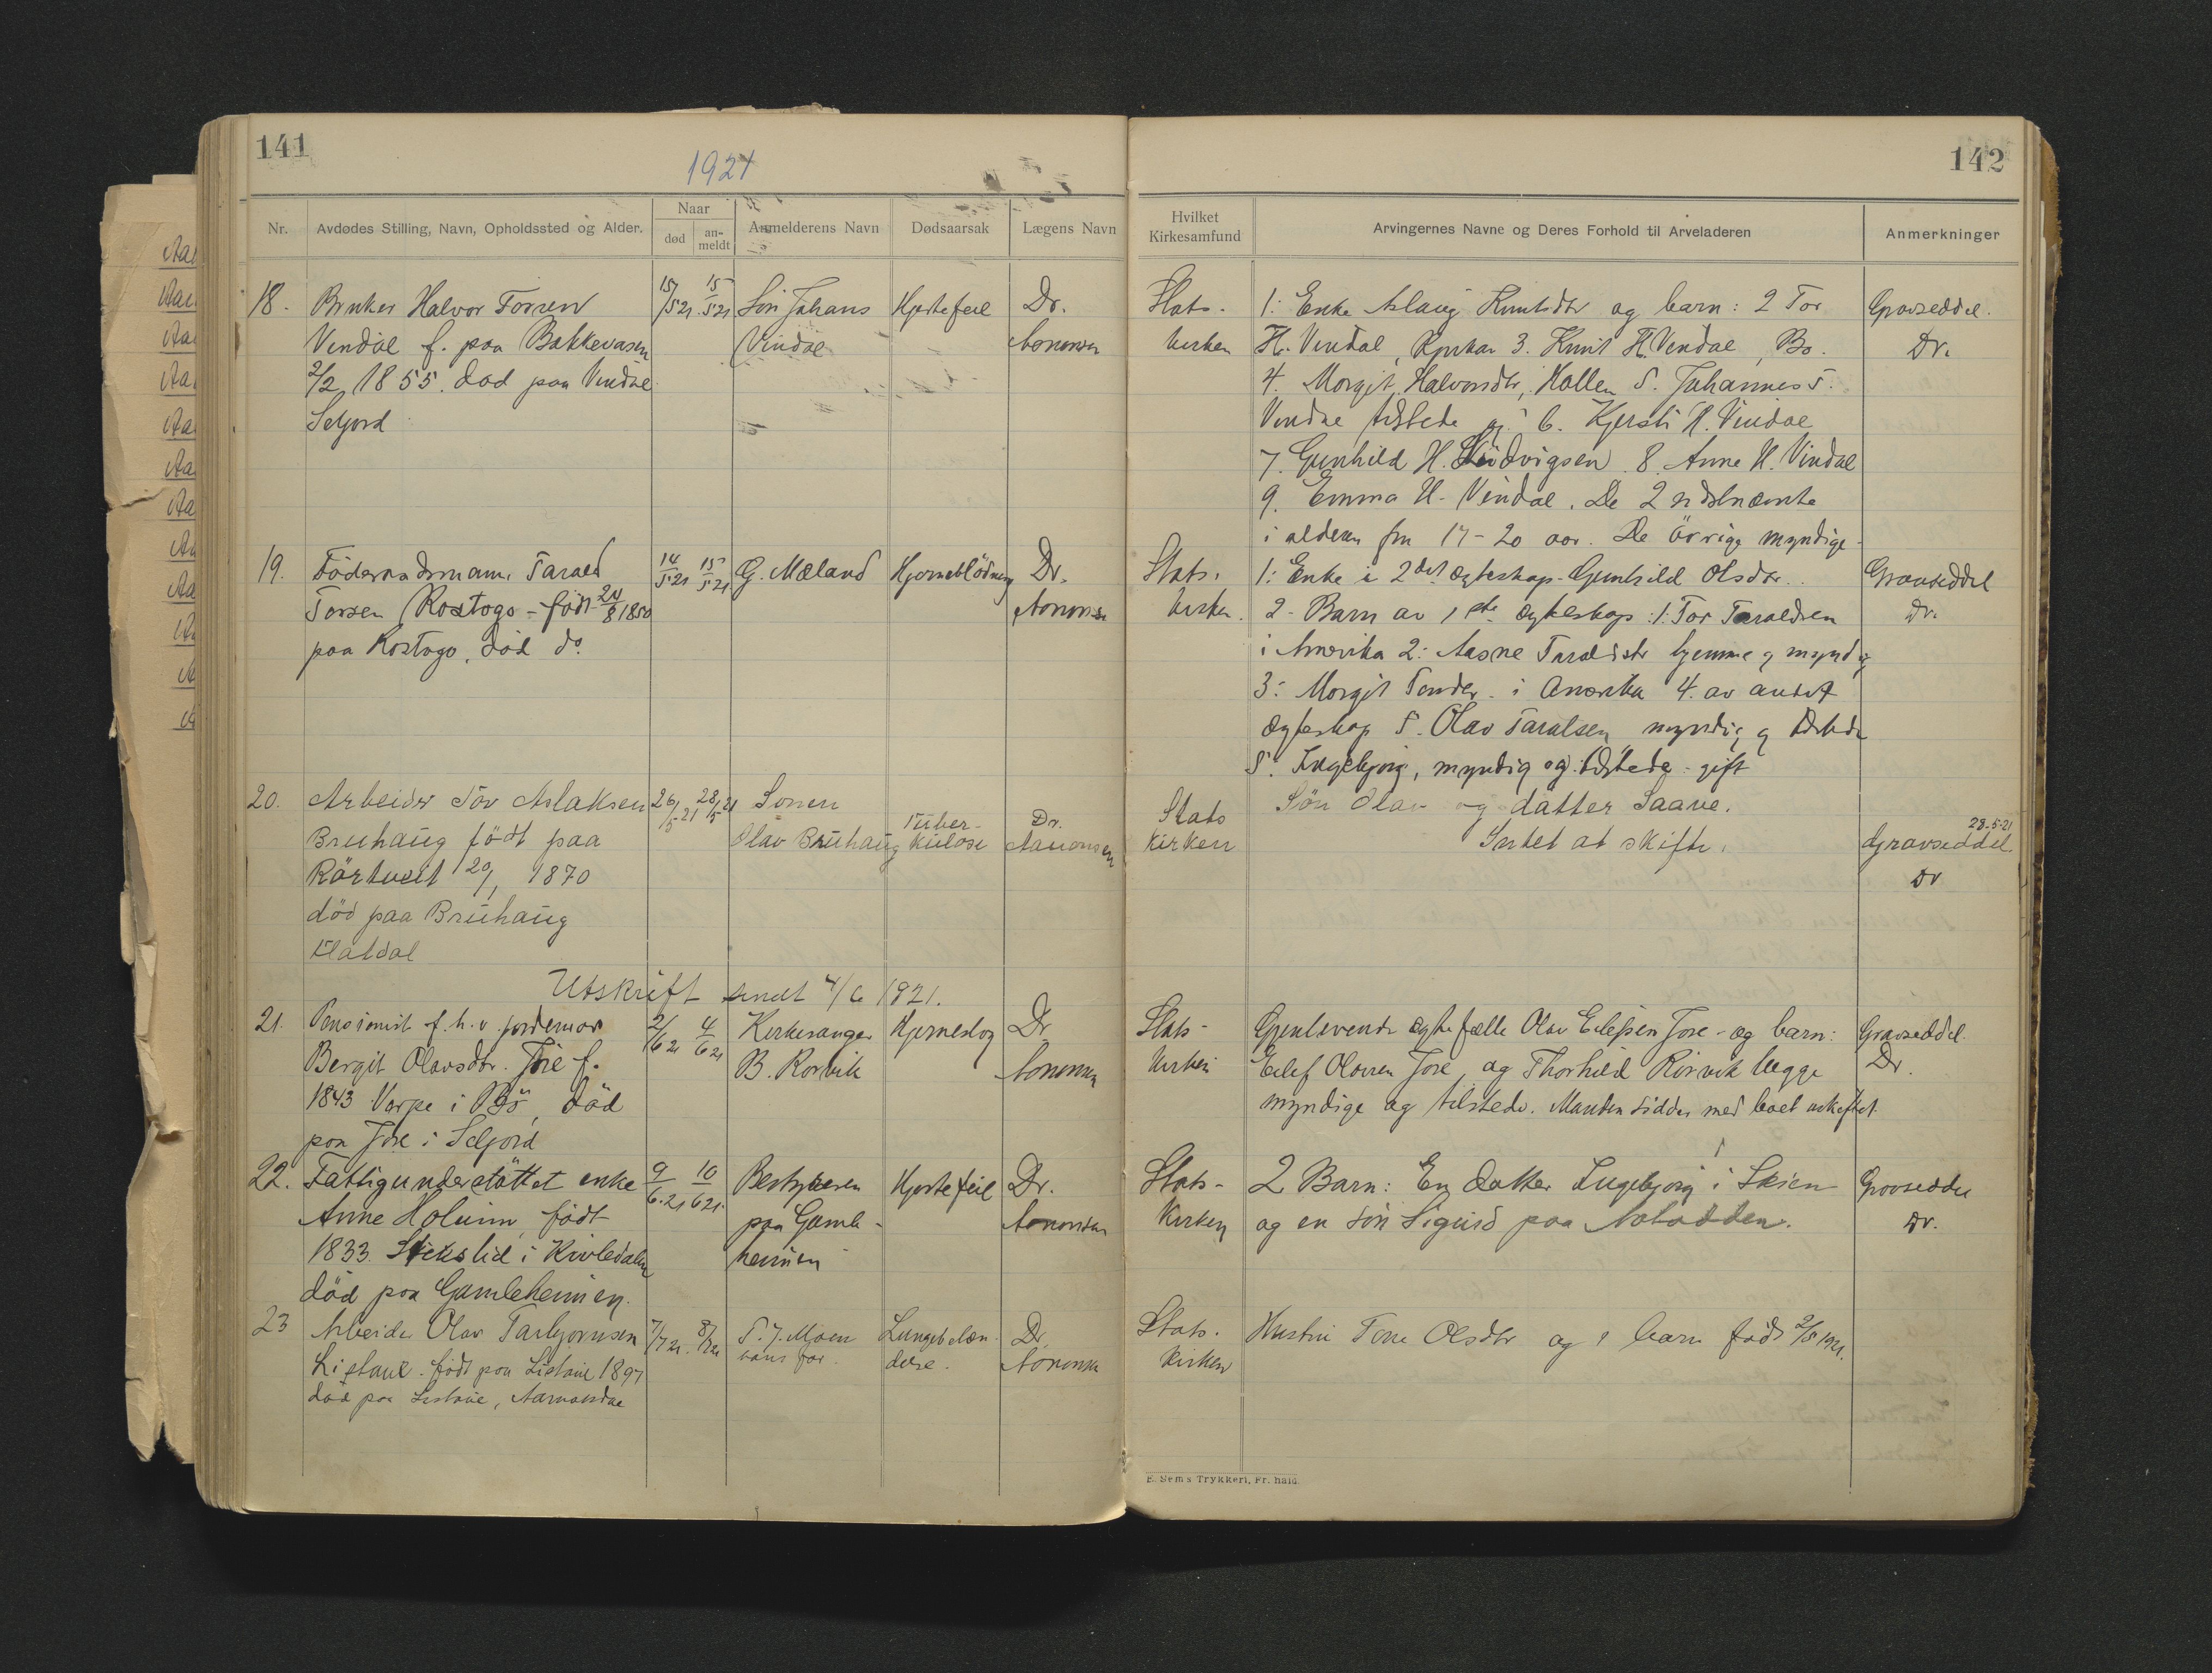 141
1921
Nr.
Avdødes Stilling, Navn, Opholdssted og Alder.
Naar
død
an-
meldt
Anmelderens Navn
Dødsaarsak
Lægens Navn
18. Bruker Halvor Torsen
Vindal f. paa Bakkevasen
2/2 1855. død paa Vindal
Seljord
15/5 21 15/5 21
Søn Johans
Vindal
Hjertefeil
Dr.
Aanonsen
19. Föderaadsmann Tarald
Torsen Rostogo - födt 24/8 1850
paa Rostogo, död do.
14/5 21 15/5 21
G. Mæland
Hjerneblödning
Dr.
Aanonsen
20. Arbeider Tov Aslaksen
Bruhaug födt paa
Rörtveit 20/1 1870
död paa Bruhaug
Flatdal
26/5 21 28/5 21
Sonen
Olav Bruhaug
Tuber-
kulose
Dr.
Aanonsen
Utskrift sendt 4/6 1921.
21. Pensionist f.h.v. jordemor
Bergit Olavsdtr. Jore f.
1843 Vorpe i Bö, död
paa Jore i Seljord
2/6 21 4/6 21
Kirkesanger
B. Rorvik
Hjerneslag
Dr.
Aanonsen
22. Fattigunderstöttet enke
Anne Holum, födt
1833. i Kivledalen
död paa Gamleheimen.
9/6 21 10/6 21.
Bestyreren
paa Gamle-
heimen
Hjertefeil
Dr.
Aanonsen
23 Arbeider Olav Tarbjornsen
Listaul. födt paa Listaul 1897
död paa Listaul, Aamotsdal
7/7 21. 8/7 21
T. J. Moen
hans far.
Lungebetæn-
delse.
Dr.
Aanonsen
142
Hvilket
Kirkesamfund
Arvingernes Navne og Deres Forhold til Arveladeren
Anmerkninger
Stats.
kirken
1: Enke Aslaug Knutsdtr og barn: 2 Tor
H. Vindal, 3. Knut H. Vindal, Bø.
4. Morgit Halvorsdtr, Hollen 5. Johannes
Vindal tilstede og 6. Kjersti H. Vindal
7. Gunhild H. Ludvigsen 8. Anne H. Vindal
9. Emma H. Vindal. De 2 sidstnævnte
i alderen fra 17-20 aar. De övrige myndige
Gravseddel.
Dr.
Stats.
kirken.
1: Enke i 2det ægteskap. Gunhild Olsdtr.
2. Barn av 1ste ægteskap: 1: Tor Taraldsen
i Amerika 2: Aasne Taraldsdtr hjemme og myndig
3: Morgit i Amerika 4. av andet
ægteskap S. Olav Taralsen myndig og tilstede
5. Ingebjorg, myndig og tilstede - gift
Gravseddel
Dr.
Stats
Kirken
Sön Olav og datter Saave.
Intet at skifte.
28-5-21
Gravseddel.
Dr
Stats-
kirken
Gjenlevende ægtefælle Olav Eilefsen Jore - og barn:
Eilef Olavsen Jore, og Thorhild Rörvik begge
myndige og tilstede. Manden sidder med boet uskiftet.
Gravseddel.
Dr.
Stats-
Kirken
2 Barn: En datter Ingebjorg i Skien
og en sön Sigurd paa Notodden.
Gravseddel
Dr.
Stats.
Kirken
Hustru Tone Olsdtr og 1 barn födt 2/5 1921.
E. Sem's Trykkeri, Fr.hald.